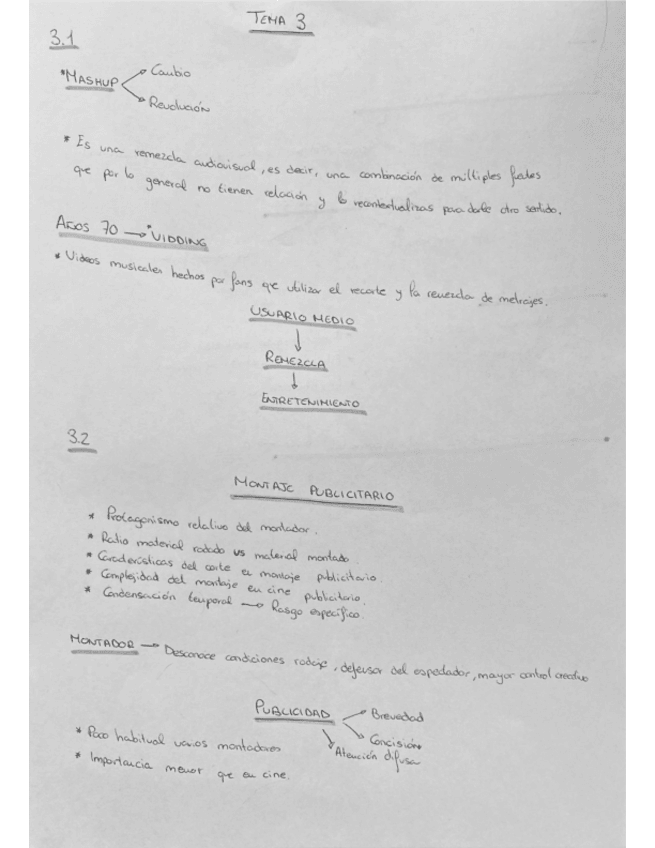 TEMA 3
3.1
*MASHUP
Cambio
Revolución
* Es una remezcla audiovisual, es decir, una combinación de múltiples
que por lo general no tienen relación y lo recontextualizas para darle otro sentido.
AÑOS 70 → *VIDDING
* Videos musicales hechos por fans que utilizan el recorte y la remezcla de metrajes.
USUARIO MEDIO
↓
REMEZCLA
↓
ENTRETENIMIENTO
3.2
MONTAJE PUBLICITARIO
* Protagonismo relativo del montador.
* Ratio material rodado vs material montado.
* Características del corte en montaje publicitario.
* Complejidad del montaje en cine publicitario.
* Condensación temporal → Rasgo específico.
MONTADOR → Desconoce condiciones rodaje, defensor del espectador, mayor control creativo
PUBLICIDAD
Brevedad
Concisión
Atención difusa
* Poco habitual varios montadores
* Importancia menor que en cine.